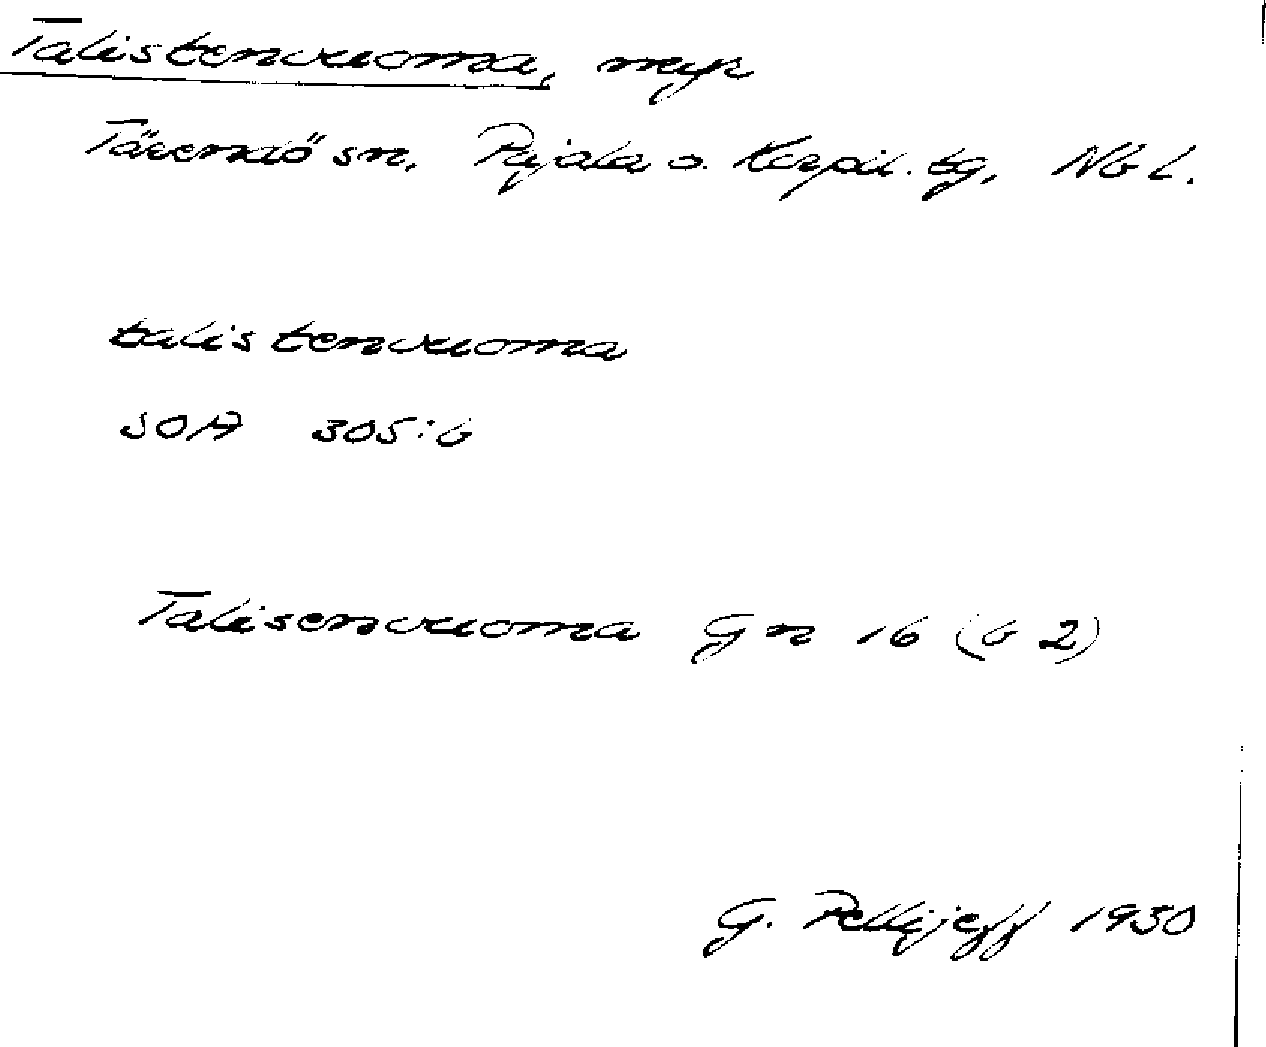 Talistenvuoma, myr
Tärendö sn, Pajala o. Korpil. tg, Nb L.
talistenvuoma
SOA 305:6
Talisenvuoma Gn 16 (b 2)
G. Pellijeff 1950